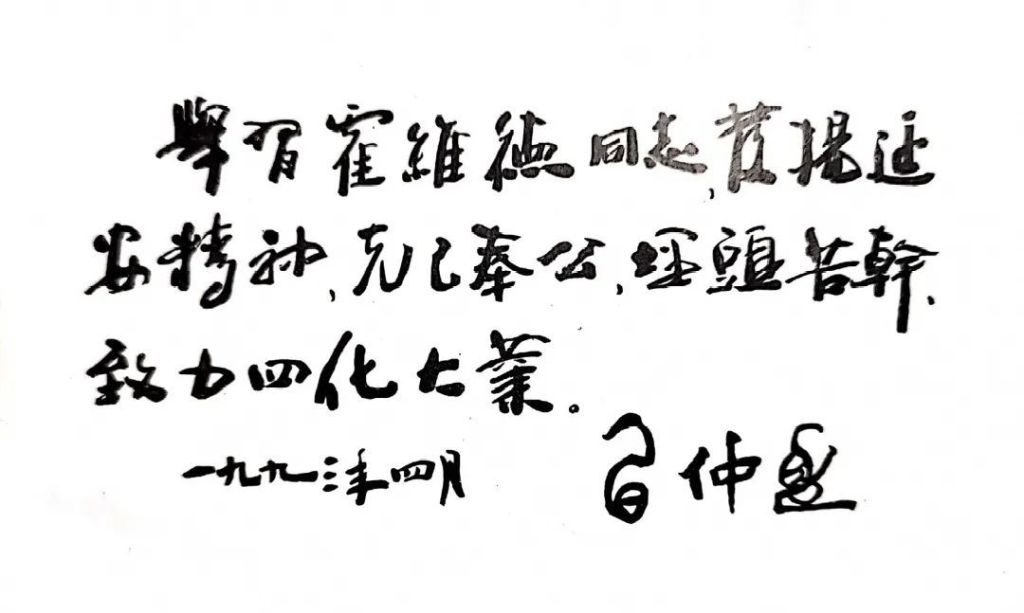 學習霍維德同志,發揚延
安精神,克己奉公,埋頭苦幹、
致力四化大業。
一九九三年四月 習仲勛